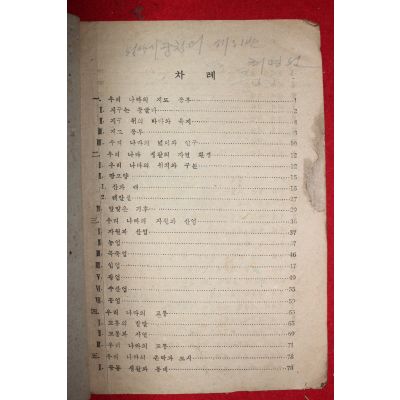 차 례
一. 우리 나라의 지도 공부 1
Ⅰ. 지구는 둥글다 2
Ⅱ. 지구 위의 바다와 육지 4
Ⅲ. 지도 공부 7
Ⅳ. 우리 나라의 넓이와 인구 10
二. 우리 나라 생활의 자연 환경 12
Ⅰ. 우리 나라의 위치와 구분 12
Ⅱ. 땅모양 15
1. 산과 내 15
2. 해안선
Ⅲ. 알맞은 기후 29
三. 우리 나라의 자원과 산업
Ⅰ. 자원과 산업 37
Ⅱ. 농업
Ⅲ. 목축업 46
Ⅳ. 임업 47
Ⅴ. 광업
Ⅵ. 수산업
Ⅶ. 공업
四. 우리 나라의 교통
Ⅰ. 교통의 발달
Ⅱ. 교통과 자연
Ⅲ. 우리 나라의 교통 71
五. 우리 나라의 촌락과 도시 78
Ⅰ. 공동 생활과 동네 78